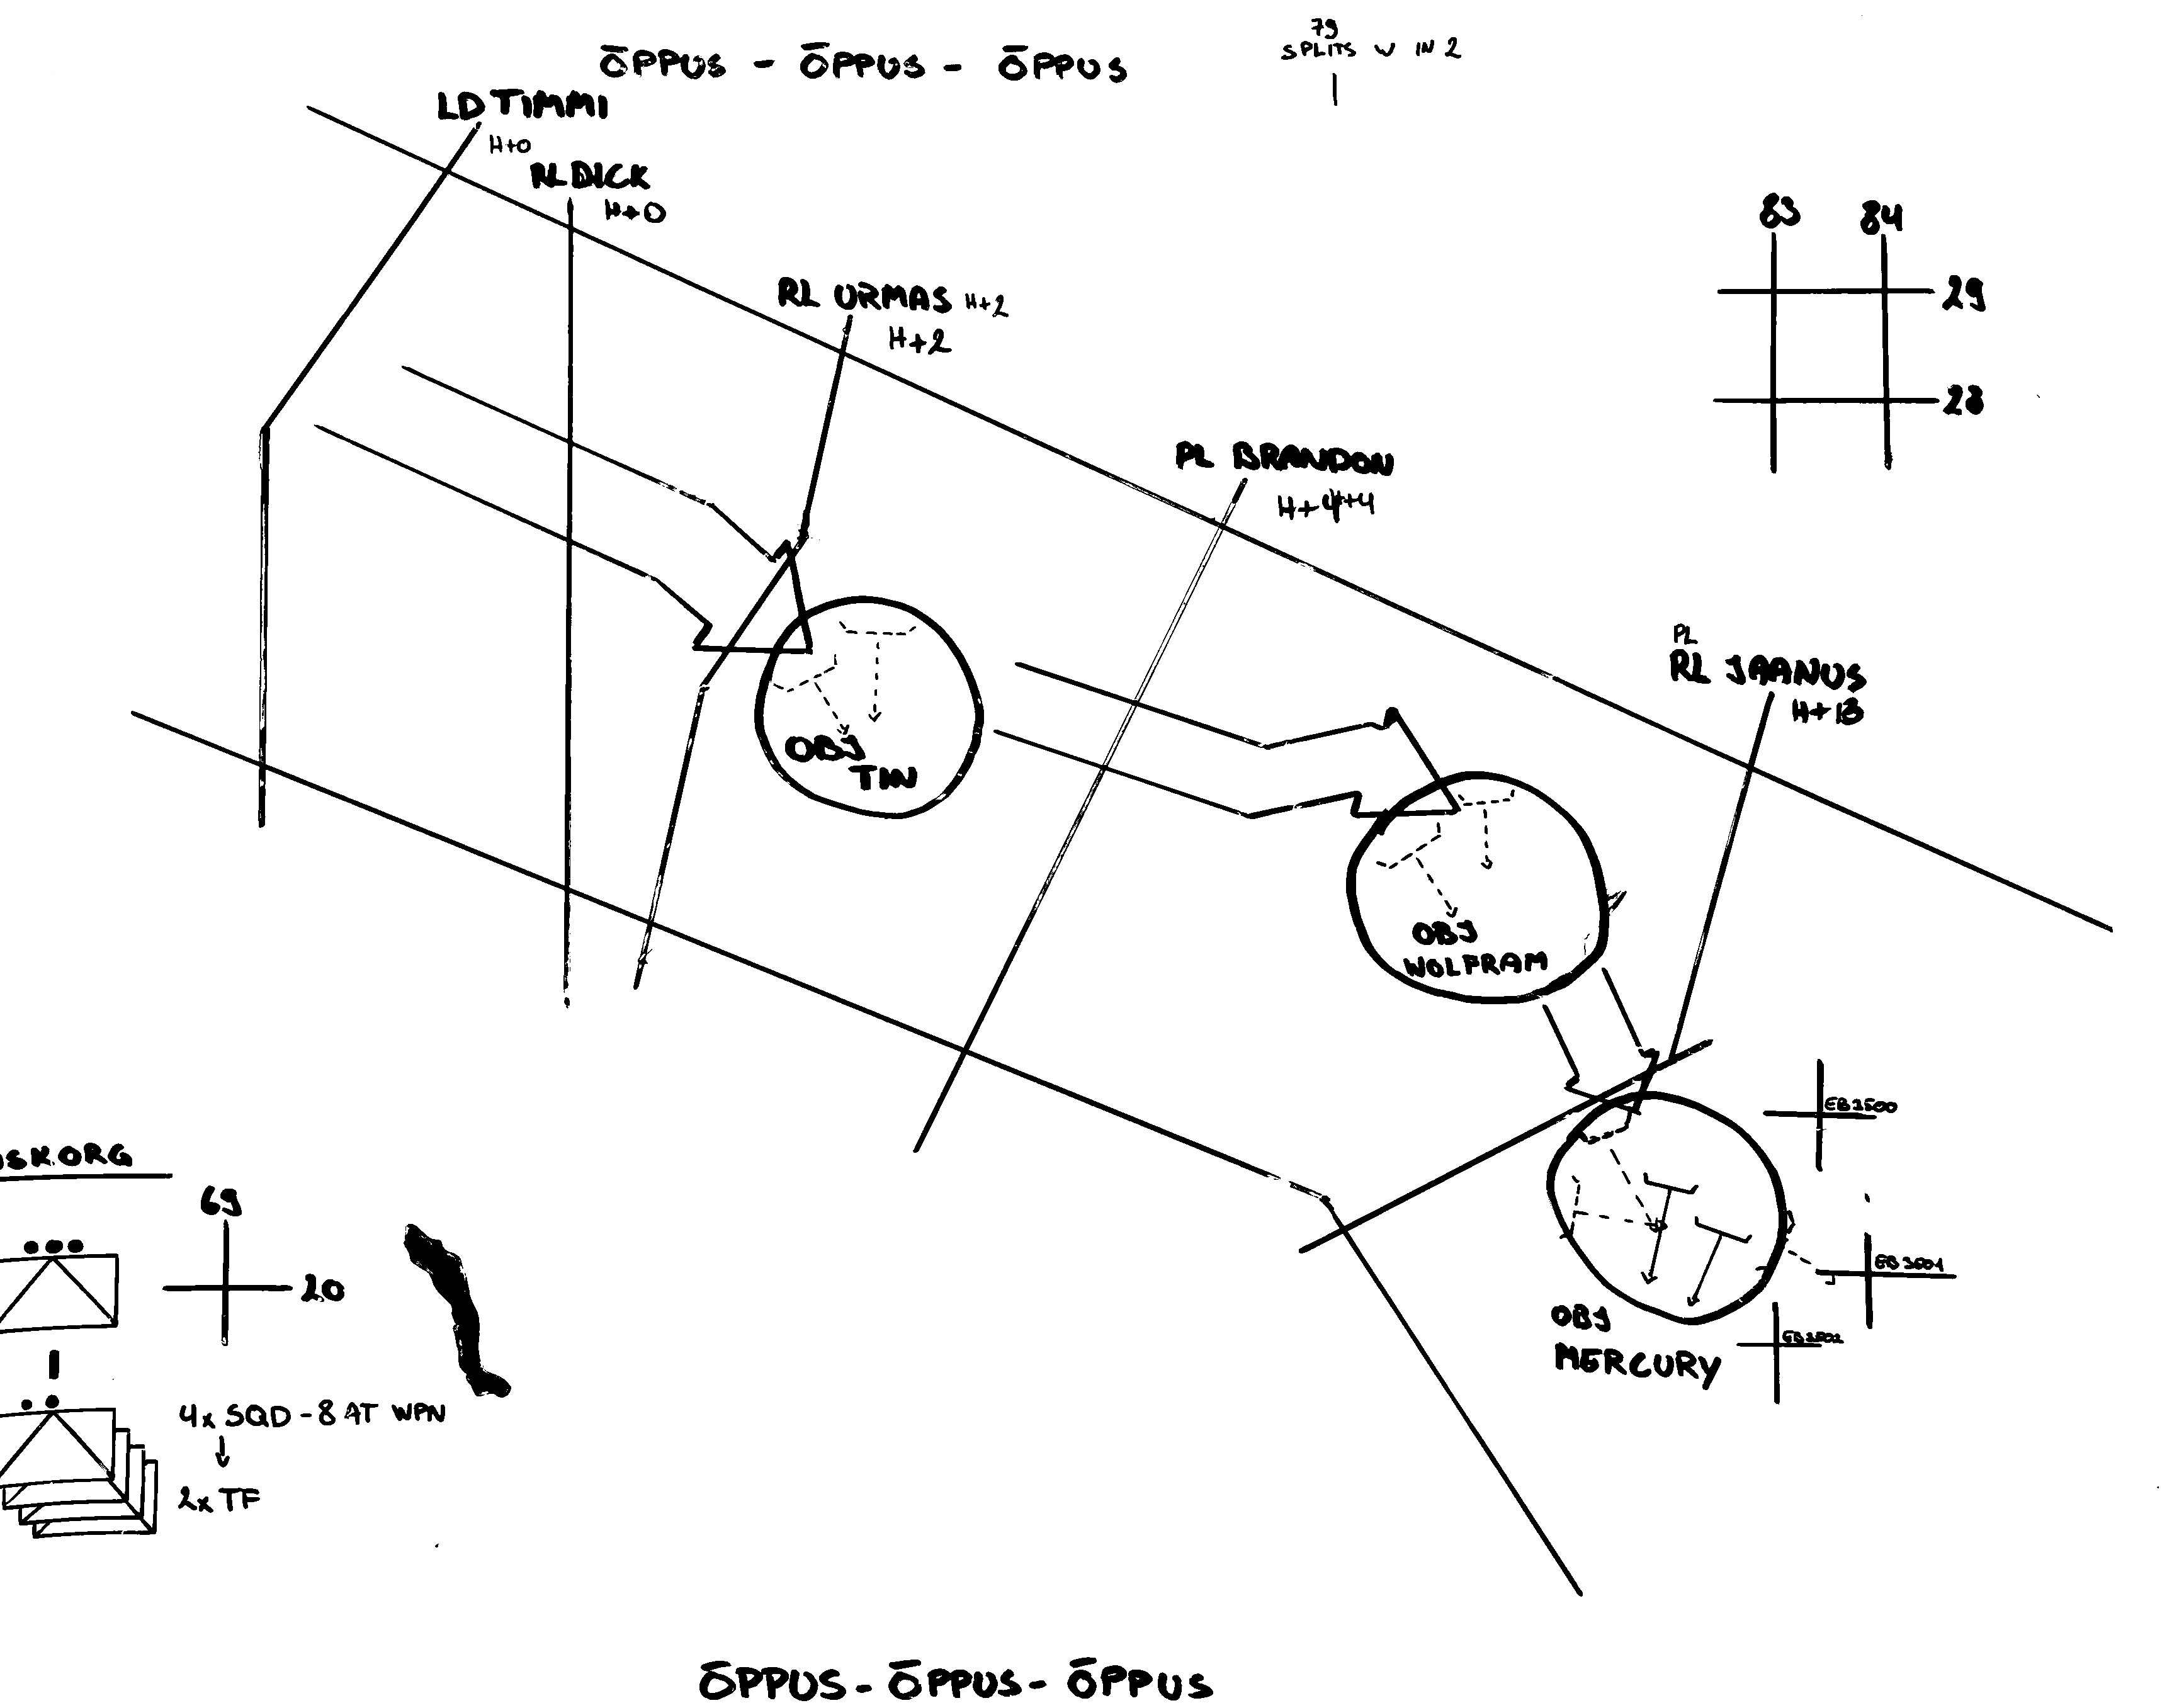 ÕPPUS - ÕPPUS - ÕPPUS
79
SPLITS W IN 2
LD TIMMI
H+0
RL DICK
H+0
RL URMAS H+2
H+2
83 84
29
28
PL BRANDON
H+4
PL
RL JAANUS
H+13
OBJ
TIN
OBJ
WOLFRAM
EB 2500
EB 2501
EB 2502
OBJ
MERCURY
SKORG
69
20
4x SQD - 8 AT WPN
2x TF
ÕPPUS - ÕPPUS - ÕPPUS